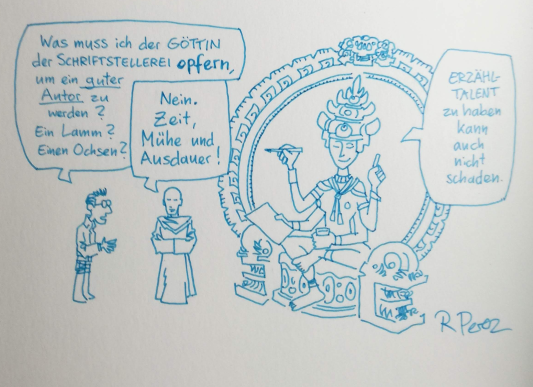 Was muss ich der GÖTTIN
der SCHRIFTSTELLEREI opfern,
um ein guter
Autor zu
werden?
Ein Lamm?
Einen Ochsen?
Nein.
Zeit,
Mühe und
Ausdauer!
ERZÄHL-
TALENT
zu haben
kann
auch
nicht
schaden.